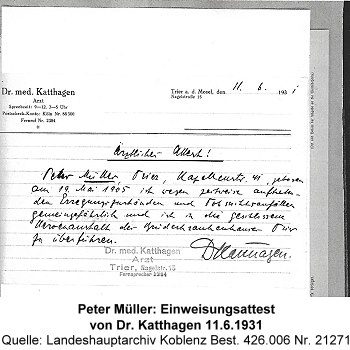 Dr. med. Katthagen
Arzt
Sprechzeit: 9—12, 3—5 Uhr
Postscheck-Konto: Köln Nr. 86300
Fernruf Nr. 2284
Trier a. d. Mosel, den 11. 6. 1931
Nagelstraße 15
Ärztliches Attest!
Peter Müller, Trier, 41, geboren
am 19. Mai 1905 ist wegen zeitweise auftreten-
den Erregungszuständen und Tobsuchtsanfällen
gemeingefährlich und ist in die geschlossene
Nervenanstalt des Brüderkrankenhauses Trier
zu überführen.
Dr. med. Katthagen
Arzt
Trier, Nagelstr. 15
Fernsprecher 2284
Dr Katthagen.
Peter Müller: Einweisungsattest
von Dr. Katthagen 11.6.1931
Quelle: Landeshauptarchiv Koblenz Best. 426.006 Nr. 21271